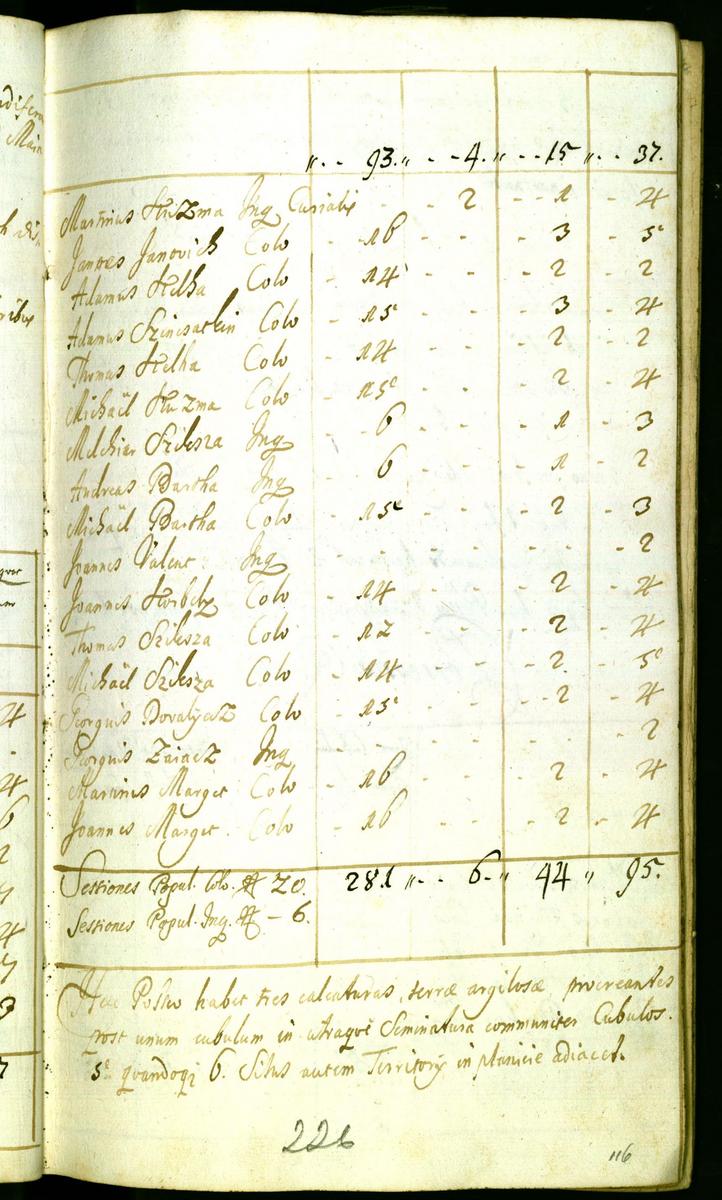 „ - - 93. „ - - 4. „ - - 15 „ - - 37.
Martinus Huzma Inq Curialis - - 2 - - 1 - 4
Jannes Janovich Colo - 16 - - - 3 - 5
Adamus Helha Colo - 14 - - - 2 - 2
Adamus Colo - 15 - - - 3 - 4
Thomas Helha Colo - 14 - - - 2 - 2
Michaël Huzma Colo - 15 - - - 2 - 4
Melchior Szilesza Inq - 6 - - - 1 - 3
Andreas Bartha Inq - 6 - - - 1 - 2
Michaël Bartha Colo - 15 - - - 2 - 3
Joannes Valent: Inq - - - - - - 2
Joannes Colo - 14 - - - 2 - 4
Thomas Szilesza Colo - 12 - - - 2 - 4
Michaël Szilesza Colo - 14 - - - 2 - 5
Georguis Dovalycz Colo - 15 - - - 2 - 4
Georguis Zaiacz Inq - - - - - 2
Martinus Marget Colo - 16 - - - 2 - 4
Joannes Marget Colo - 16 - - - 2 - 4
Sessiones Popul. Colo. 20. 281 „ - - 6 - „ 44 „ 95.
Sessiones Popul. Inq. - 6.
Hæc Possio habet tres calcaturas, terræ argilosæ procreantes
post unum cubulum in utraque Seminatura communiter Cubulos.
5 quandoqi 6. Situs autem Territory in planicie adiacet.
226
116